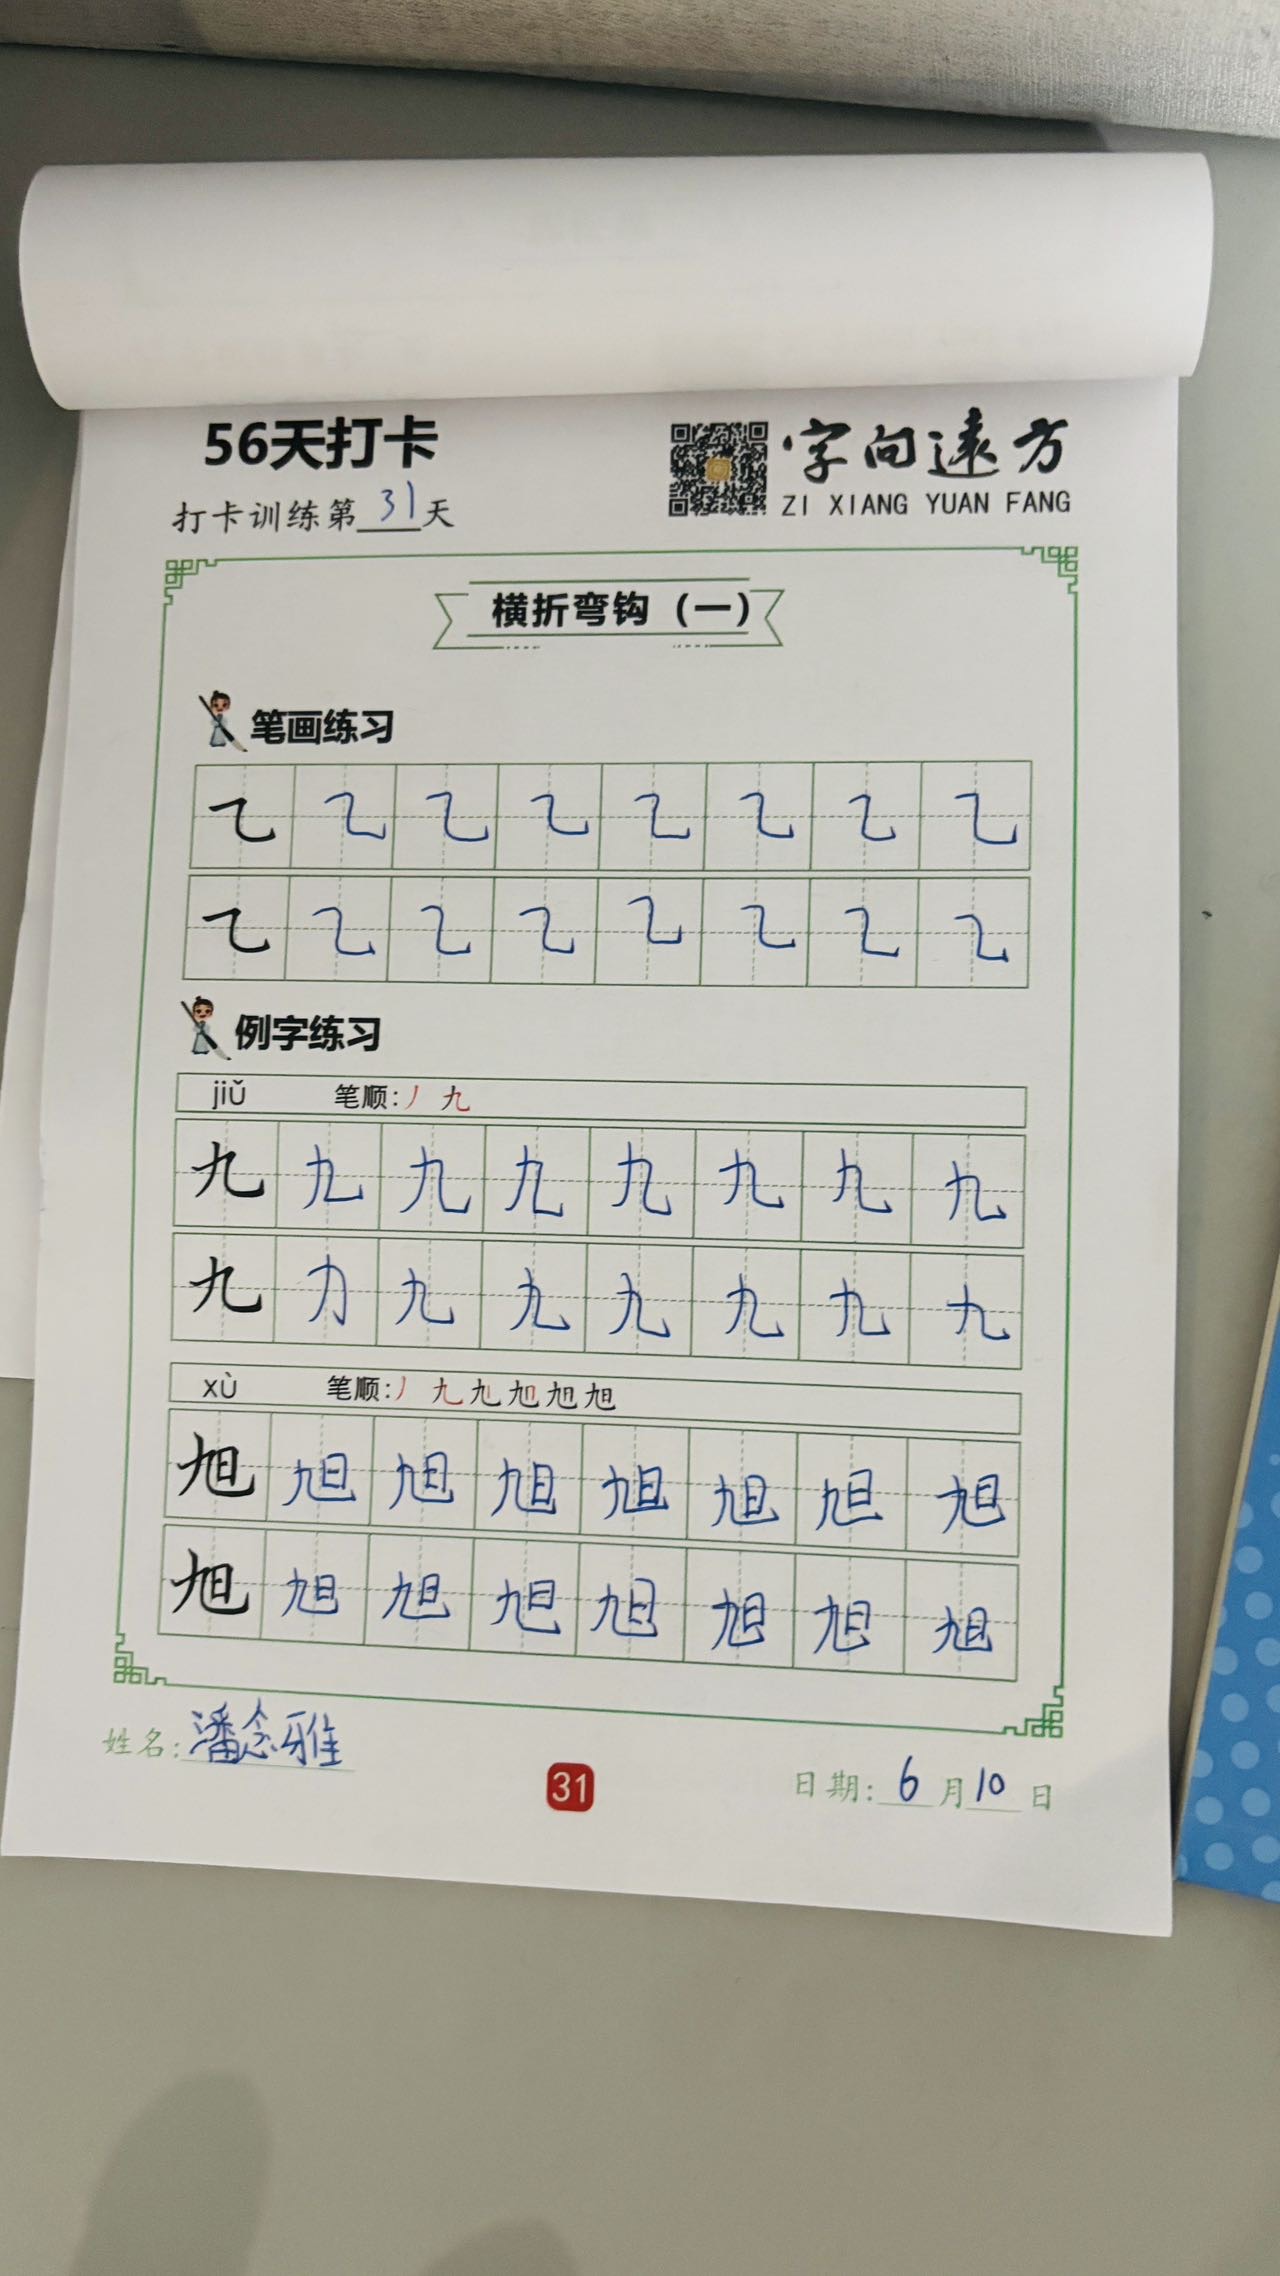 56天打卡
字向遠方
ZI XIANG YUAN FANG
打卡训练第31天
横折弯钩（一）
笔画练习
㇈ ㇈ ㇈ ㇈ ㇈ ㇈ ㇈ ㇈
㇈ ㇈ ㇈ ㇈ ㇈ ㇈ ㇈ ㇈
例字练习
jiǔ 笔顺:丿 九
九 九 九 九 九 九 九 九
九 力 九 九 九 九 九 九
xù 笔顺:丿 九 旭 旭 旭 旭
旭 旭 旭 旭 旭 旭 旭 旭
旭 旭 旭 旭 旭 旭 旭 旭
姓名:潘念雅
31
日期:6月10日